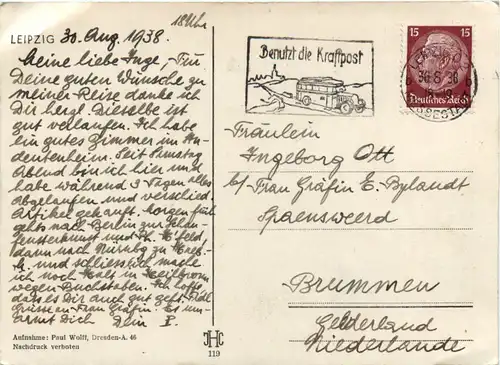 18 Uhr
LEIPZIG 30. Aug. 1938.
Meine liebe Inge, Für
Deine guten Wünsche zu
meiner Reise danke ich
Dir hergl. Dieselbe ist
gut verlaufen. Ich habe
ein gutes Zimmer im
dentenheim. Seit Samstag
Abend bin ich hier und
habe während 3 Tagen alles
abgelaufen und verschied.
Artikel gekauft. Morgen früh
gehts nach Berlin zur
und
dann nach Nürnbg zu
und schliesslich mache
ich noch Halt in Heilbronn
wegen Buchstaben. Ich hoffe
dass es Dir auch gut geht.
Grüsse an Frau Gräfin. Es um-
armt Dich Dein
Aufnahme: Paul Wolff, Dresden-A. 46
Nachdruck verboten
JHC
119
Benutzt die Kraftpost
15 15
Deutsches Reich
LEIPZIG
Fräulein
Ingeborg Ott
b/ Frau Gräfin E. Bylandt
Spaensweerd
Brummen
Gelderland
Niederlande